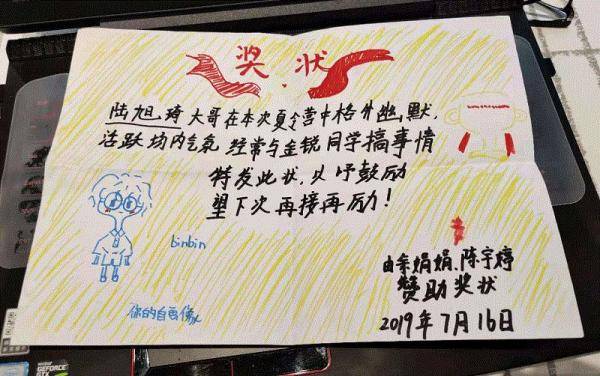 奖状
陆旭琦 大哥在本次夏令营中格外幽默,
活跃场内气氛 经常与金锐同学搞事情
特发此状,以吁鼓励
望下次再接再励!
binbin
你的自画像
由余娟娟、陈宇婷
赞助奖状
2019年7月16日
GEFORCE
GTX